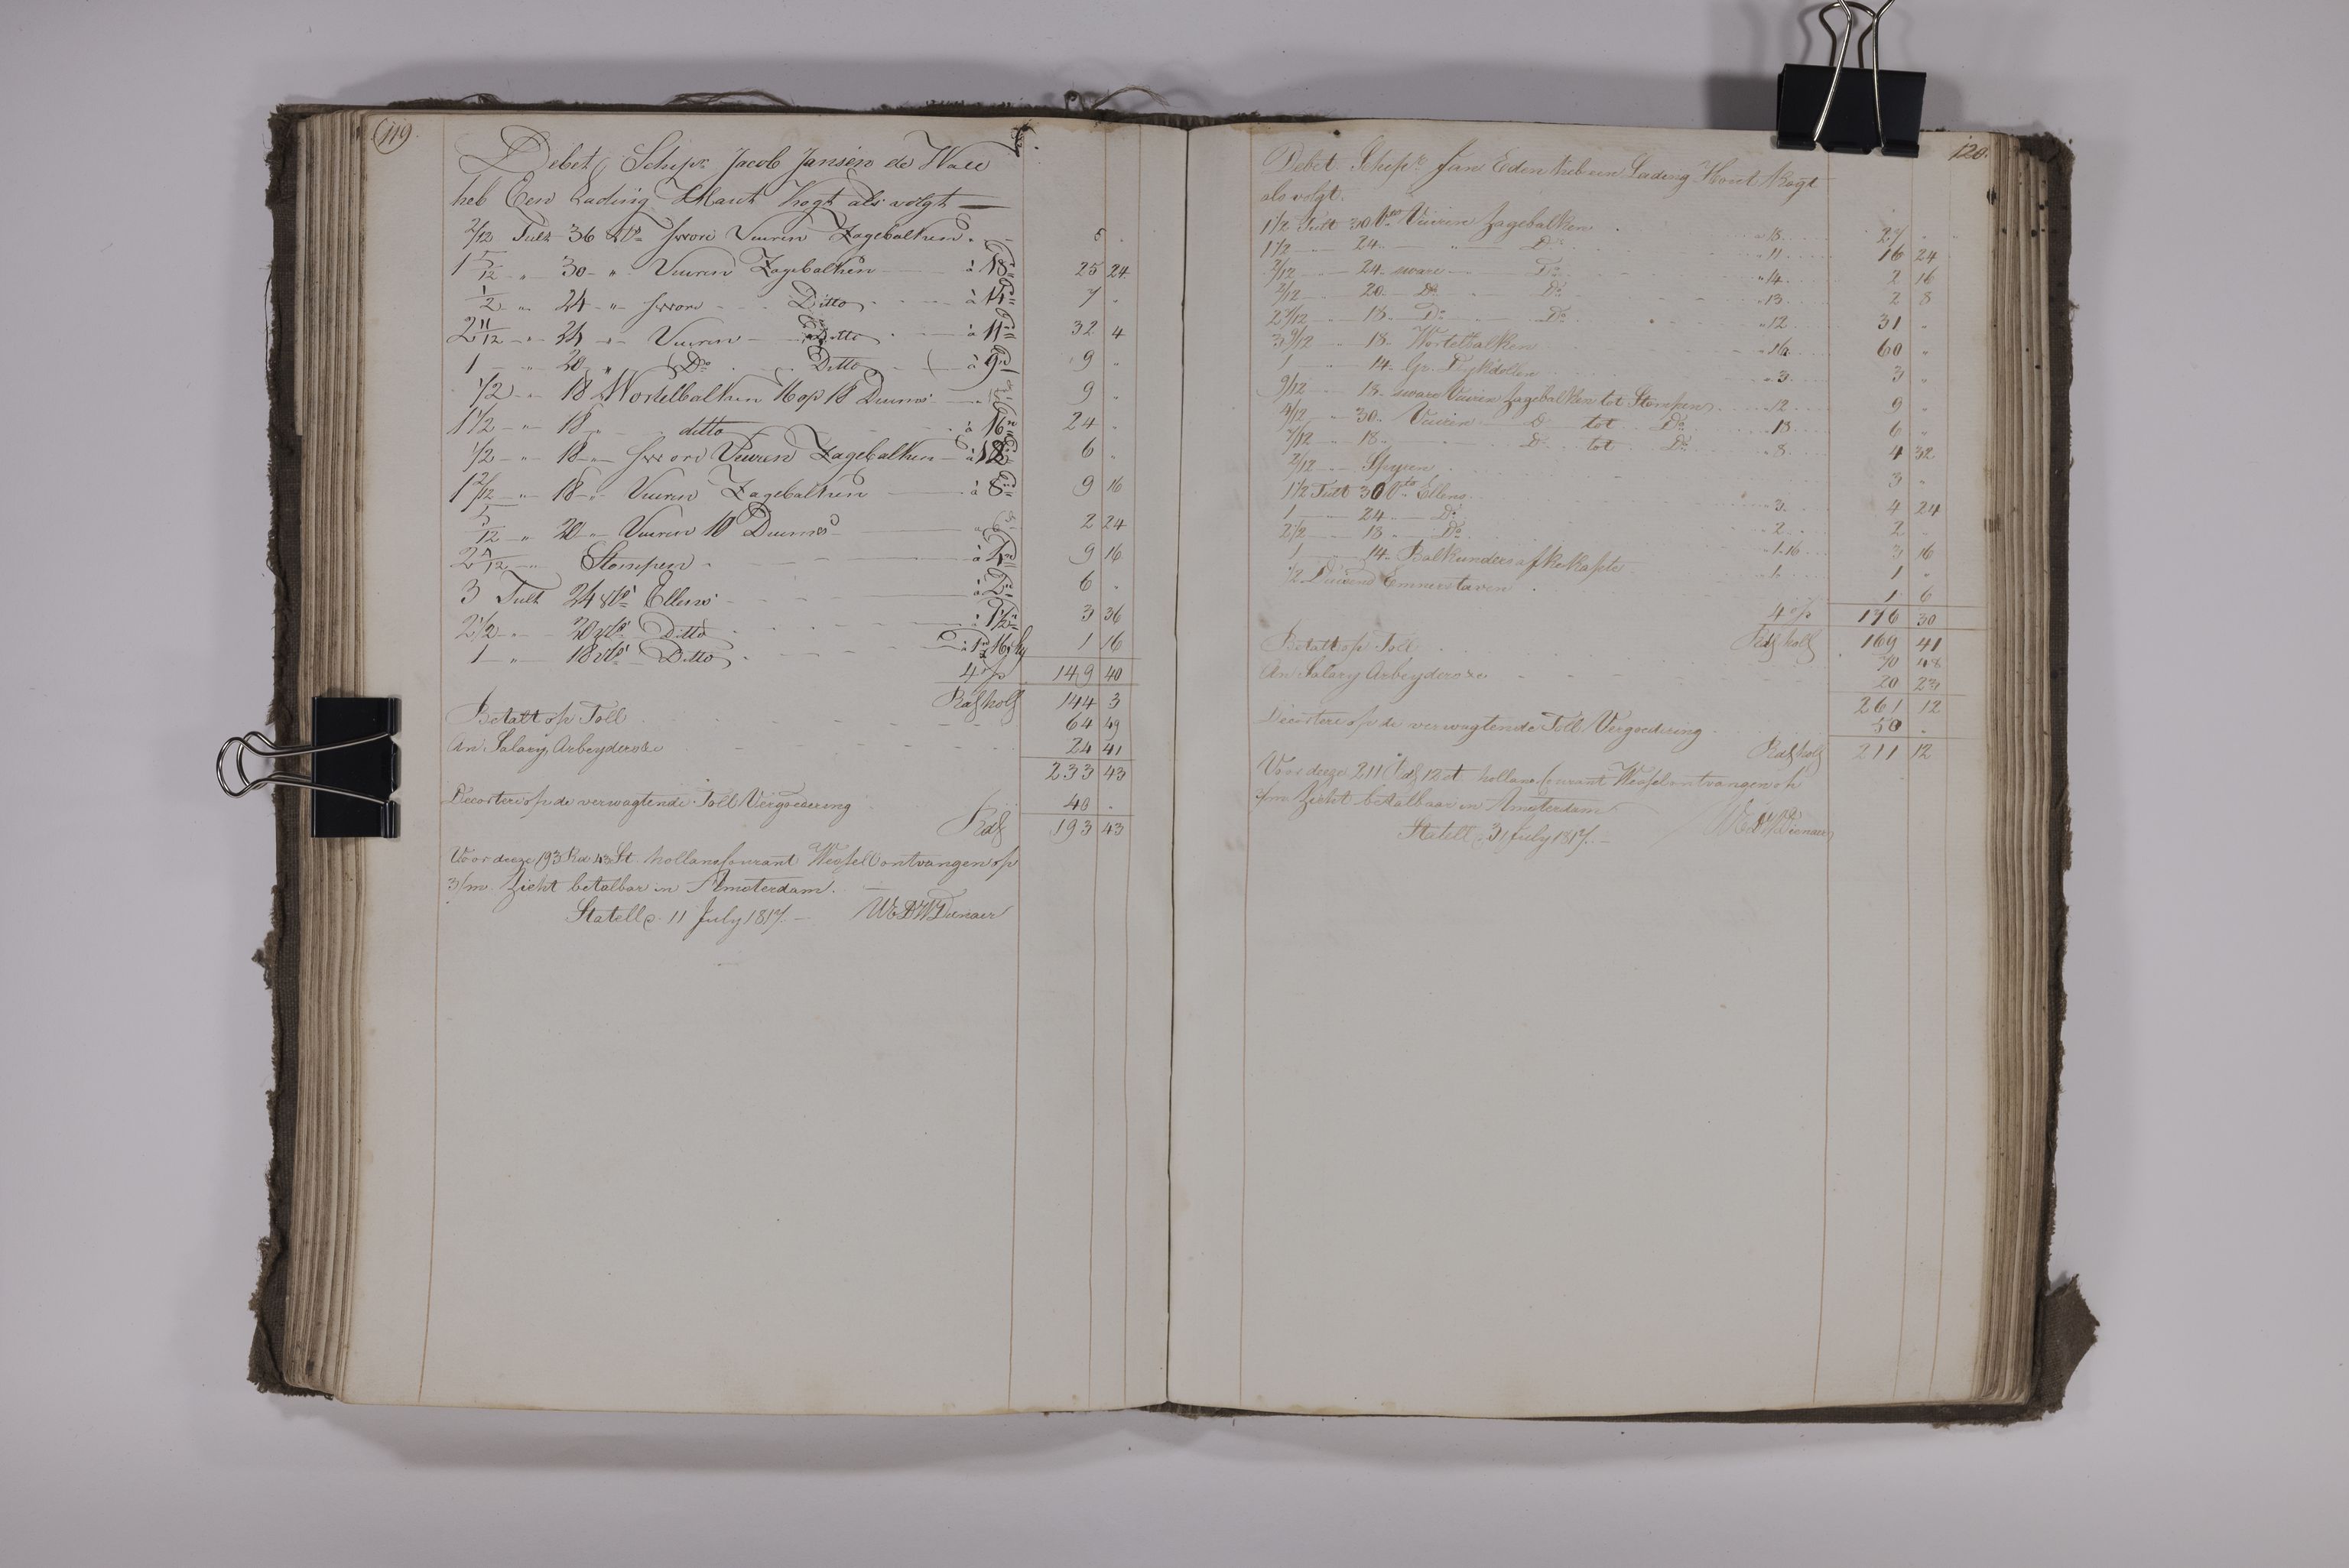 119.
Debet Schipr Jacob Jansen de Wall
heb Een Lading Haut kogt als volgt —
2/12 Tult 36 vts swore Vuuren Zagebalken 5 "
1 5/12 " 30 " Vuuren Zagebalken à 18 25 24
1/2 " 24 " swore Ditto à 14 7 "
2 11/12 " 24 " Vuuren Ditto à 11 32 4
1 " 20 " Do Ditto à 9 9 "
1/2 " 18 Wortelbalken 16 op 18 Duims 9 "
1 1/2 " 18 " ditto à 16 24 "
1/2 " 18 " swore Vuuren Zagebalken à 12 6 "
1 2/12 " 18 " Vuuren Zagebalken à 8 9 16
5/12 " 20 " Vuuren 10 Duims 2 24
Stompen 9 16
3 Tult 24 vts Ellens à 2 6 "
2 1/2 " 20 vts Ditto à 1 1/2 3 36
1 " 18 vts Ditto à 1 16 1 16
4 p 149 40
Rds holl 144 3
Betalt op Toll 64 49
An Salary Arbeyders &c 24 41
233 43
Decortere op de verwagtende Toll Vergoedering 40 "
Rds 193 43
Voor deeze 193 Rd 43 St. hollans Courant Wessel ontvangen op
3/m Zicht betalbar in Amsterdam.
Statelle 11 July 1817.
120.
Debet Schipr Jan Eden heb een Lading Hout kogt
als volgt.
1 1/2 Tult 30 Vto Vuuren Zagebalken " 18 27 "
1 1/2 " 24 " Do " 11 16 24
2/12 " 24 sware Do " 14 2 16
2/12 " 20 Do Do " 13 2 8
2 7/12 " 18 Do Do " 12 31 "
3 9/12 " 18 Wortelbalken " 16 60 "
1 " 14 Gr. Dykdollen " 3 3 "
9/12 " 18 sware Vuuren Zagebalken tot Stompen 12 9 "
4/12 " 30 Vuuren Do tot Do 18 6 "
7/12 " 18 Do tot Do " 8 4 32
2/12 3 "
1 1/2 Tult 30 Vto Ellens " 3 4 24
1 " 24 Do " 2 2 "
2 1/2 " 18 Do " 1.16 3 16
1 " 14 Balkunders afkekapte " 1 1 "
1/2 Duisend Emmerstaven 1 6
4 p 176 30
Rds holl 169 41
Betalt op Toll 70 48
An Salary Arbeyders &c 20 23
261 12
Decortere op de verwagtende Toll Vergoedering 50 "
Rds holl 211 12
Voor deeze 211 Rds 12 st hollans Courant Wessel ontvangen op
3/m Zicht betalbaar in Amsterdam
Statelle 31 July 1817.